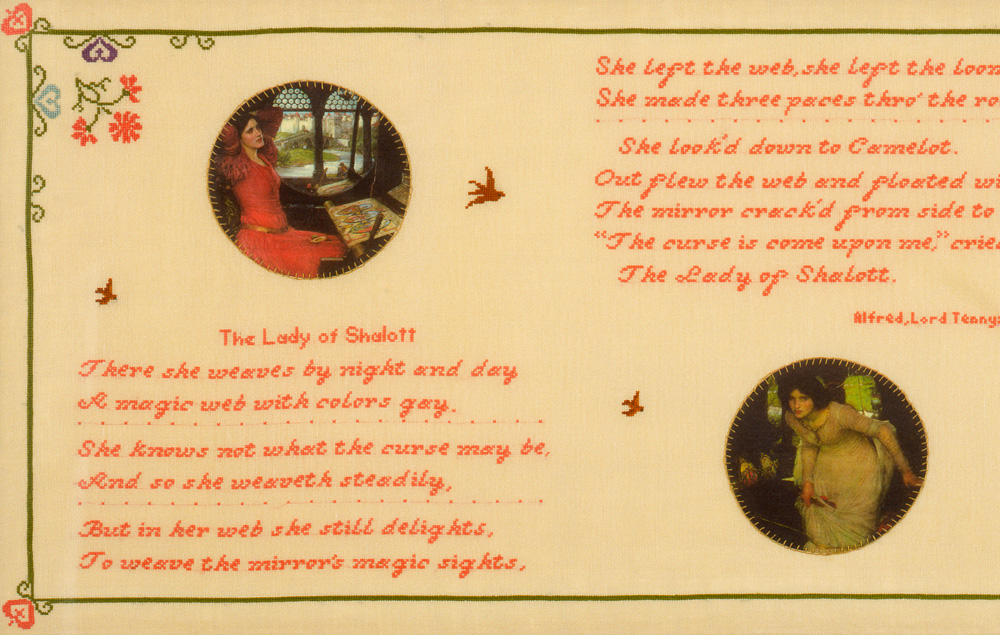 The Lady of Shalott
There she weaves by night and day
A magic web with colors gay.
She knows not what the curse may be,
And so she weaveth steadily,
But in her web she still delights,
To weave the mirror's magic sights,
She left the web, she left the loom
She made three paces thro' the
She look'd down to Camelot.
Out flew the web and floated
The mirror crack'd from side to
"The curse is come upon me,"
The Lady of Shalott.
Alfred, Lord